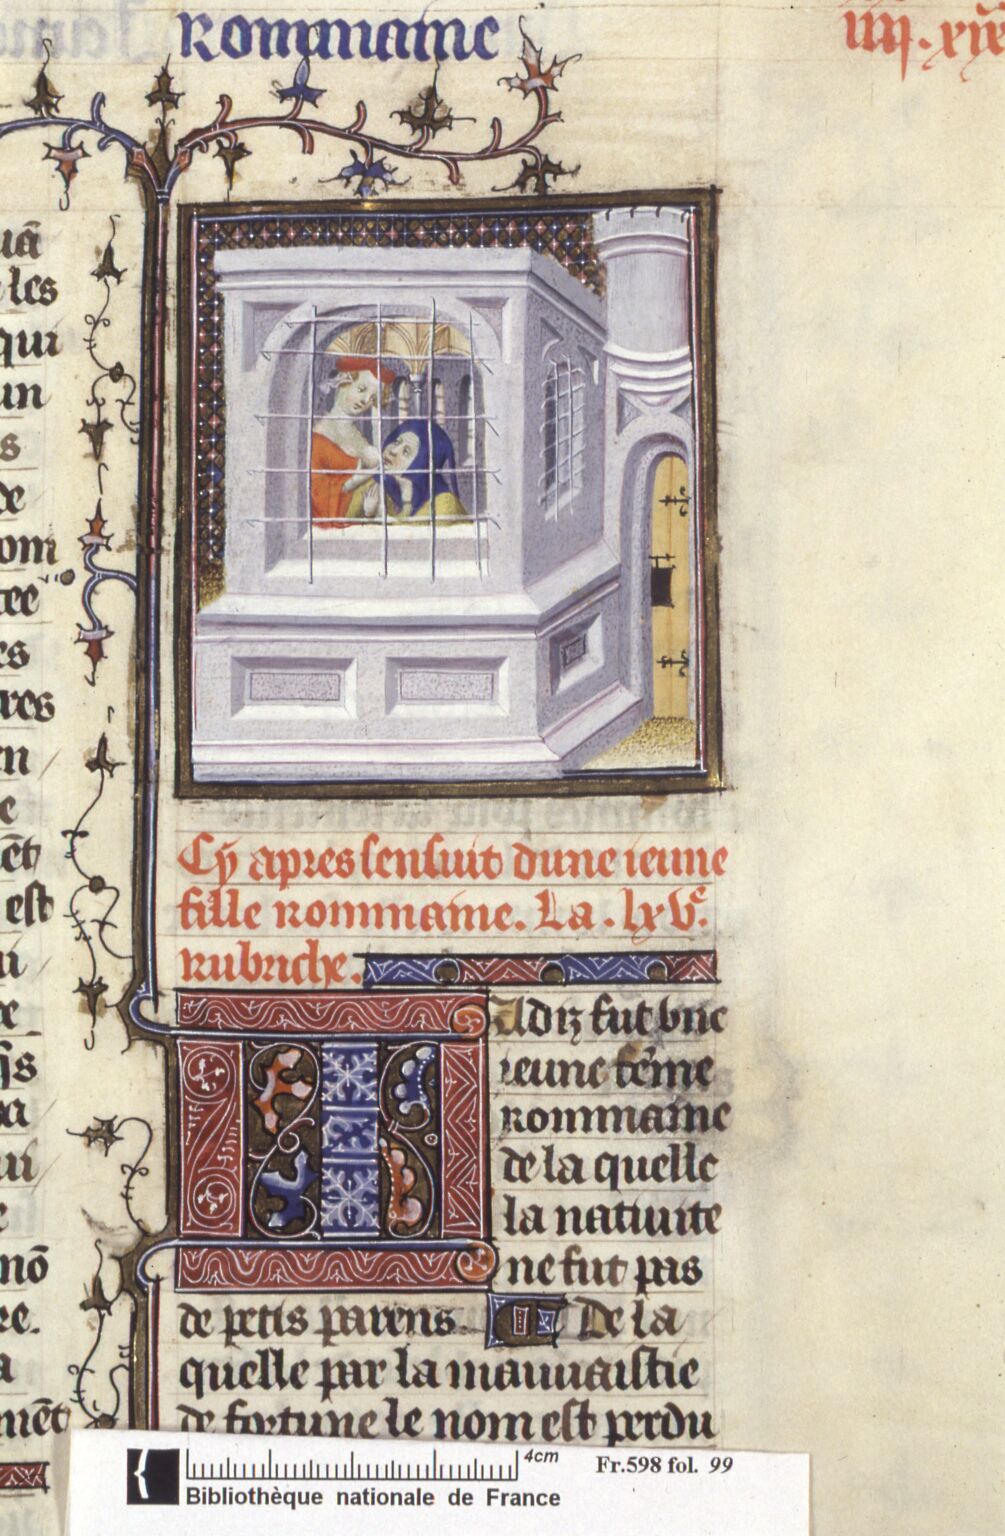 Rommaine
iiij.xix
uā
les
qui
un
s
de
om
tee
es
res
en
e
ēt
est
ui
e
ſſs
ba
ui
e
nō
re.
a
mēt
Cy apres ſenſuit dune ieune
fille rommaine. La .lxve.
rubriche.
Iadiz fut vne
ieune fēme
rommaine
de la quelle
la natiuite
ne fut pas
de petis parens. De la
quelle par la mauuaiſtie
de fortune le nom est perdu
4cm
Fr.598 fol. 99
Bibliothèque nationale de France